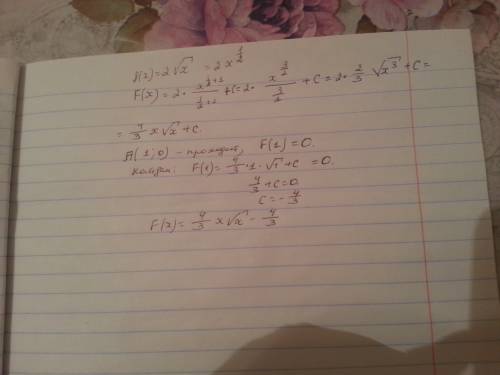 f(x) = 2√x = 2x^(1/2)
F(x) = 2 · x^(1/2+1)/(1/2+1) + C = 2 · x^(3/2)/(3/2) + C = 2 · 2/3 √x³ + C =
= 4/3 x√x + C.
A(1;0) – проходит, F(1) = 0.
F(1) = 4/3 · 1 · √1 + C = 0.
4/3 + C = 0
C = - 4/3
F(x) = 4/3 x√x - 4/3